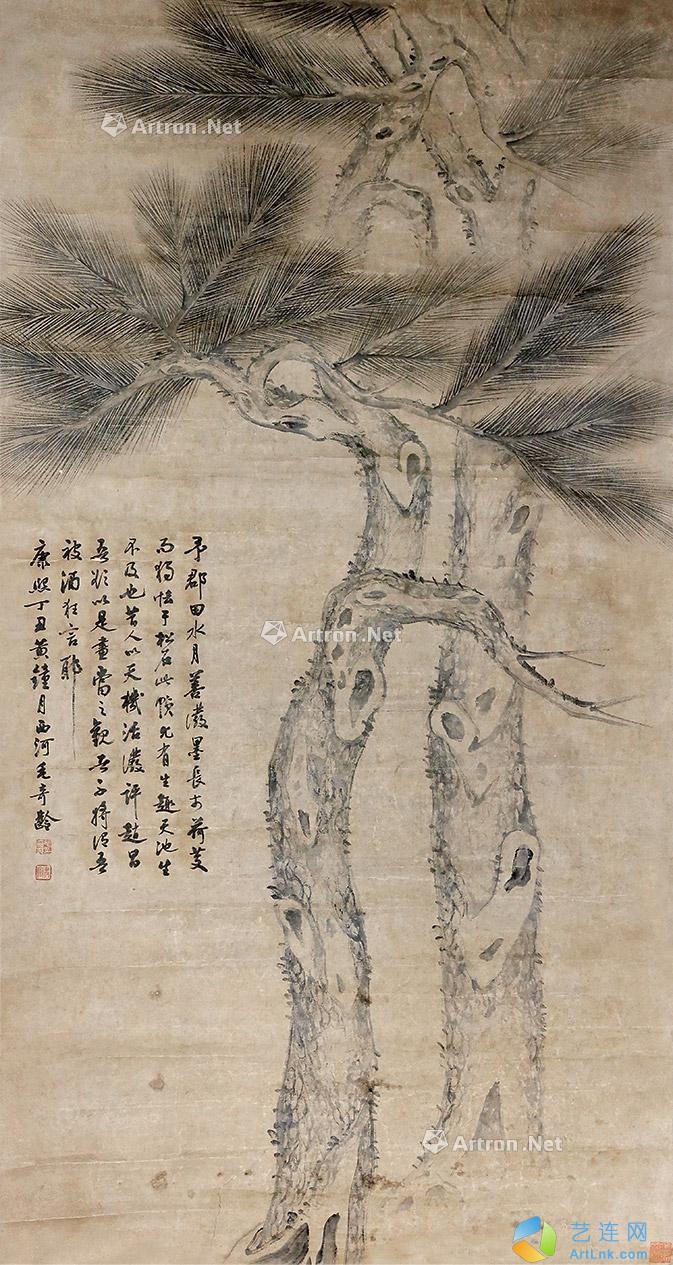 予郡田水月善潑墨長於荷芰
而獨怯于松石此幀尤有生趣天地生
不及也昔人以天機活潑評趙昌
吾欲以是畫當之觀吾子將謂吾
被酒狂言耶
康熙丁丑黄鐘月西河毛奇齡
Artron.Net
Artron.Net
Artron.Net
艺连网
ArtLnk.com